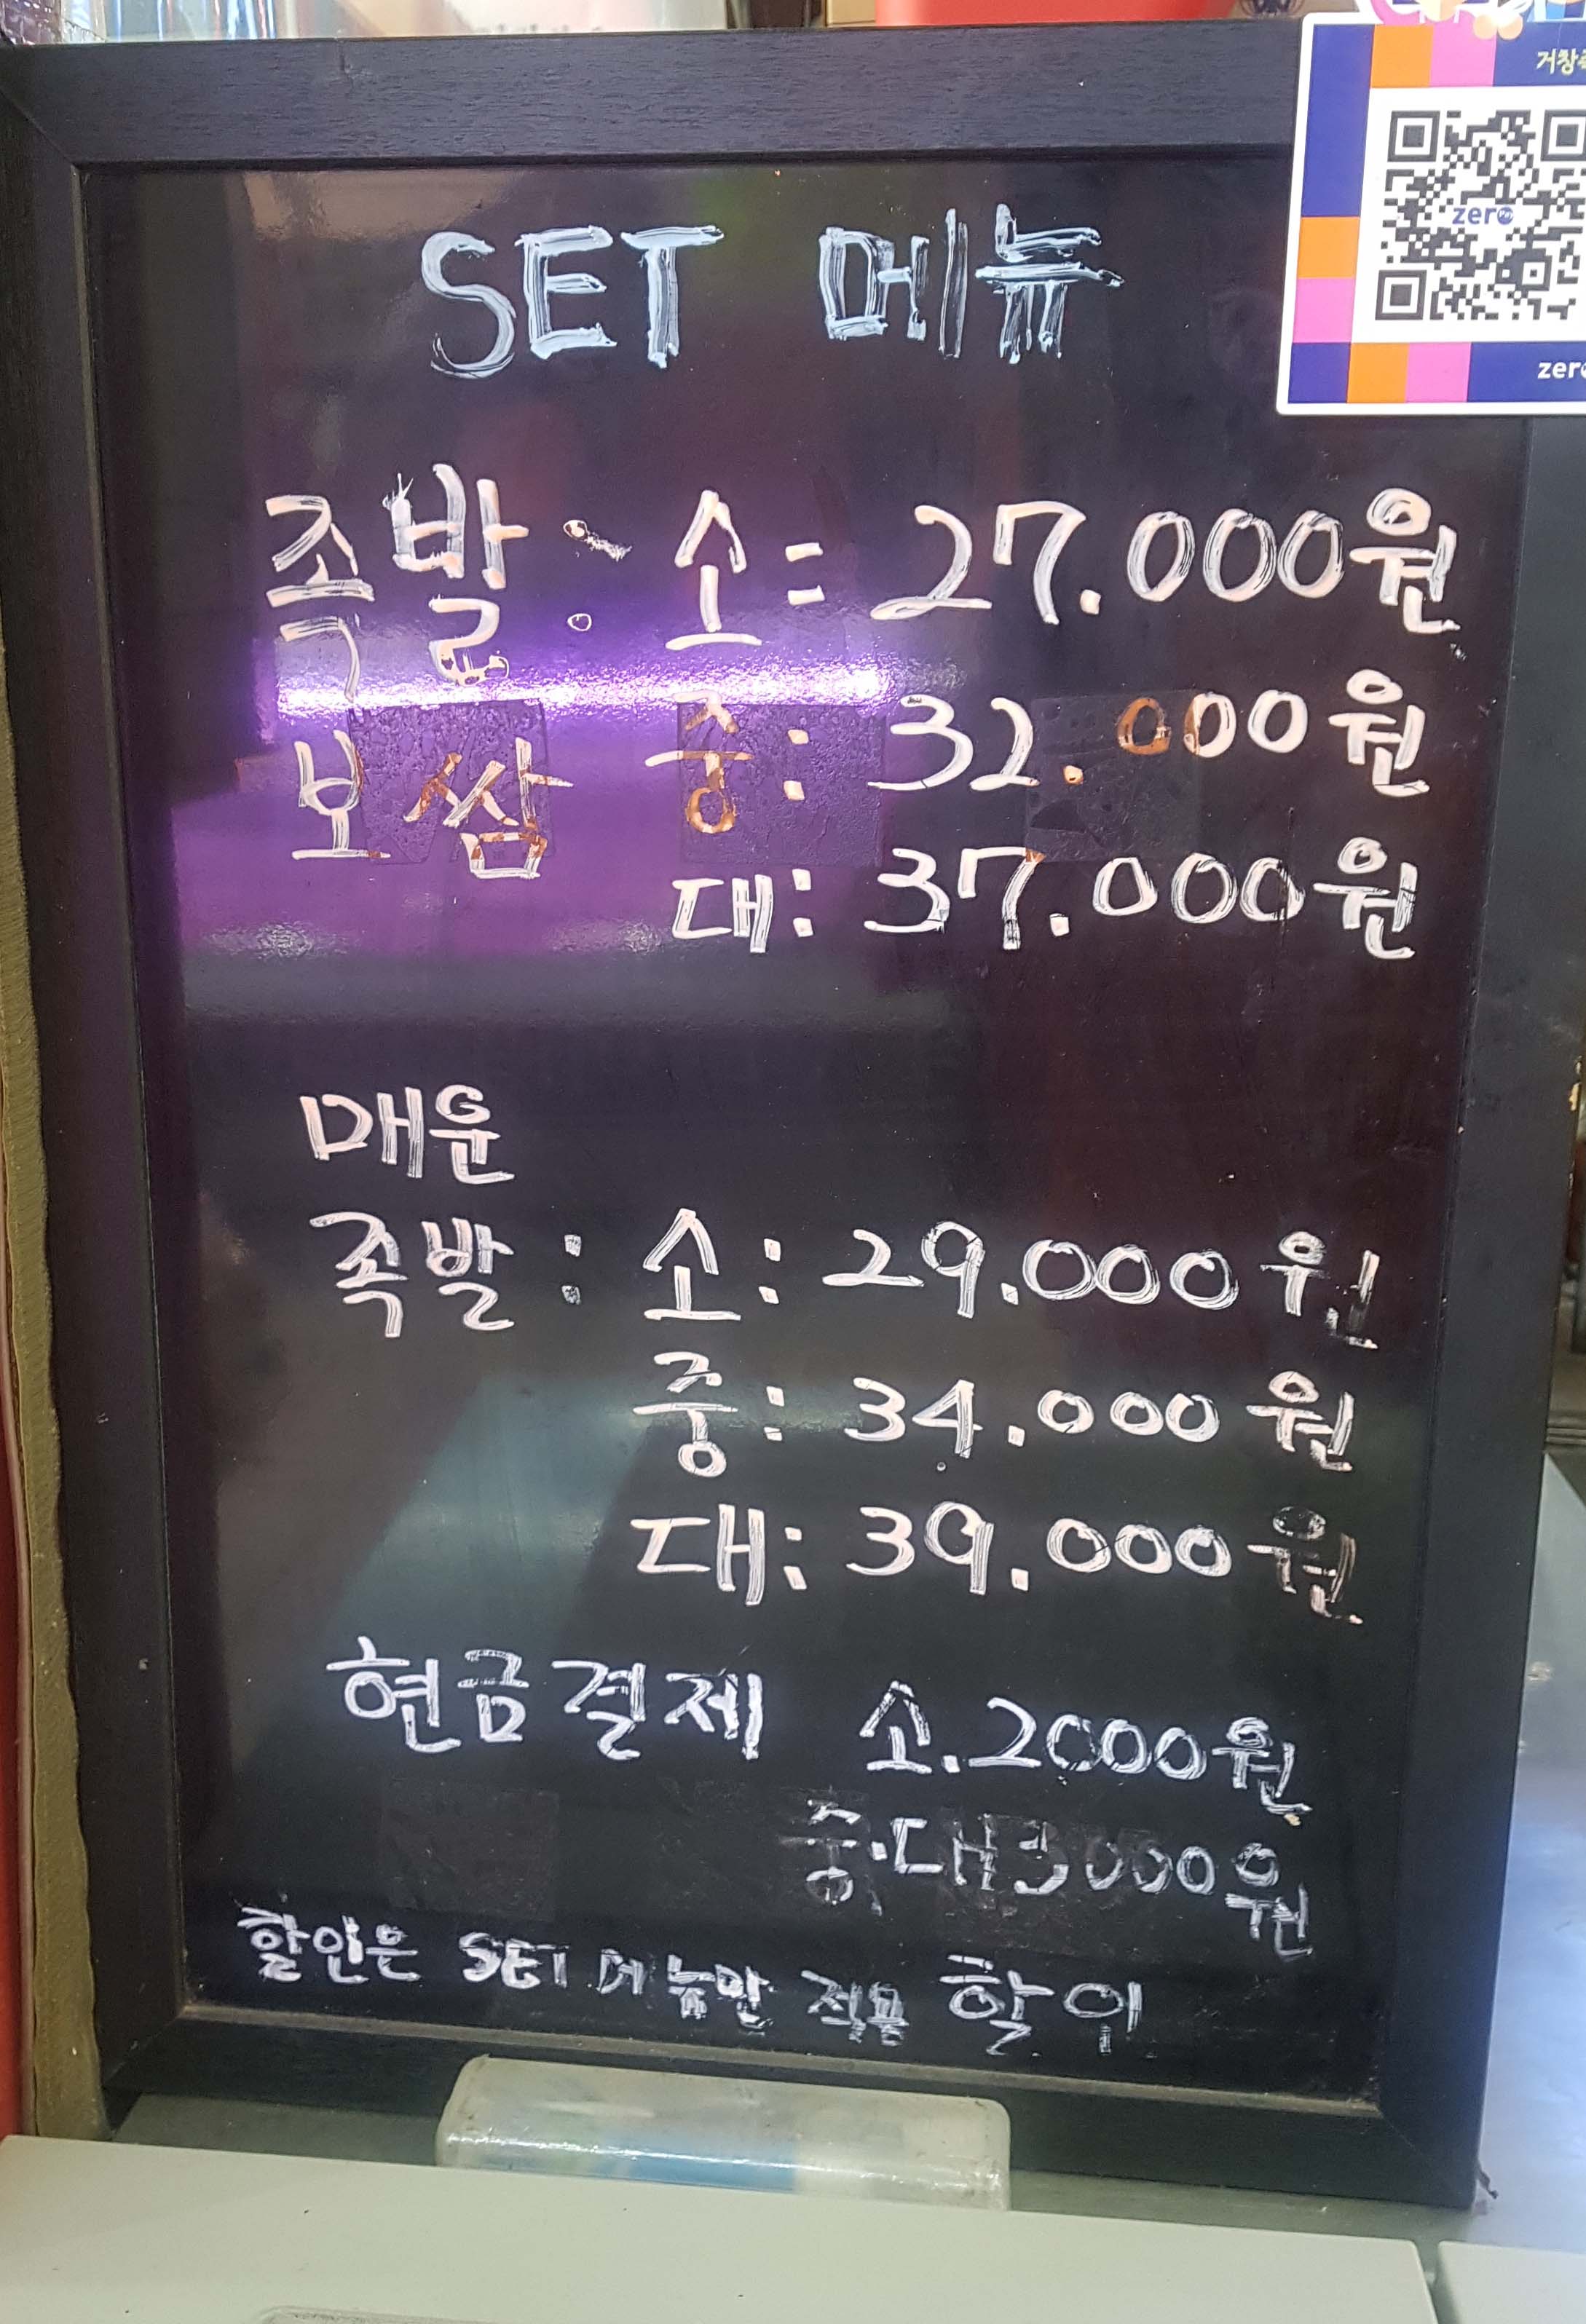 거창족
zero
zero
SET 메뉴
족발 : 소: 27.000원
보쌈 중: 32.000원
대: 37.000원
매운
족발 : 소: 29.000원
중: 34.000원
대: 39.000원
현금결제 소.2000원
중.대 3000원
할인은 SET 메뉴만 적용 할인